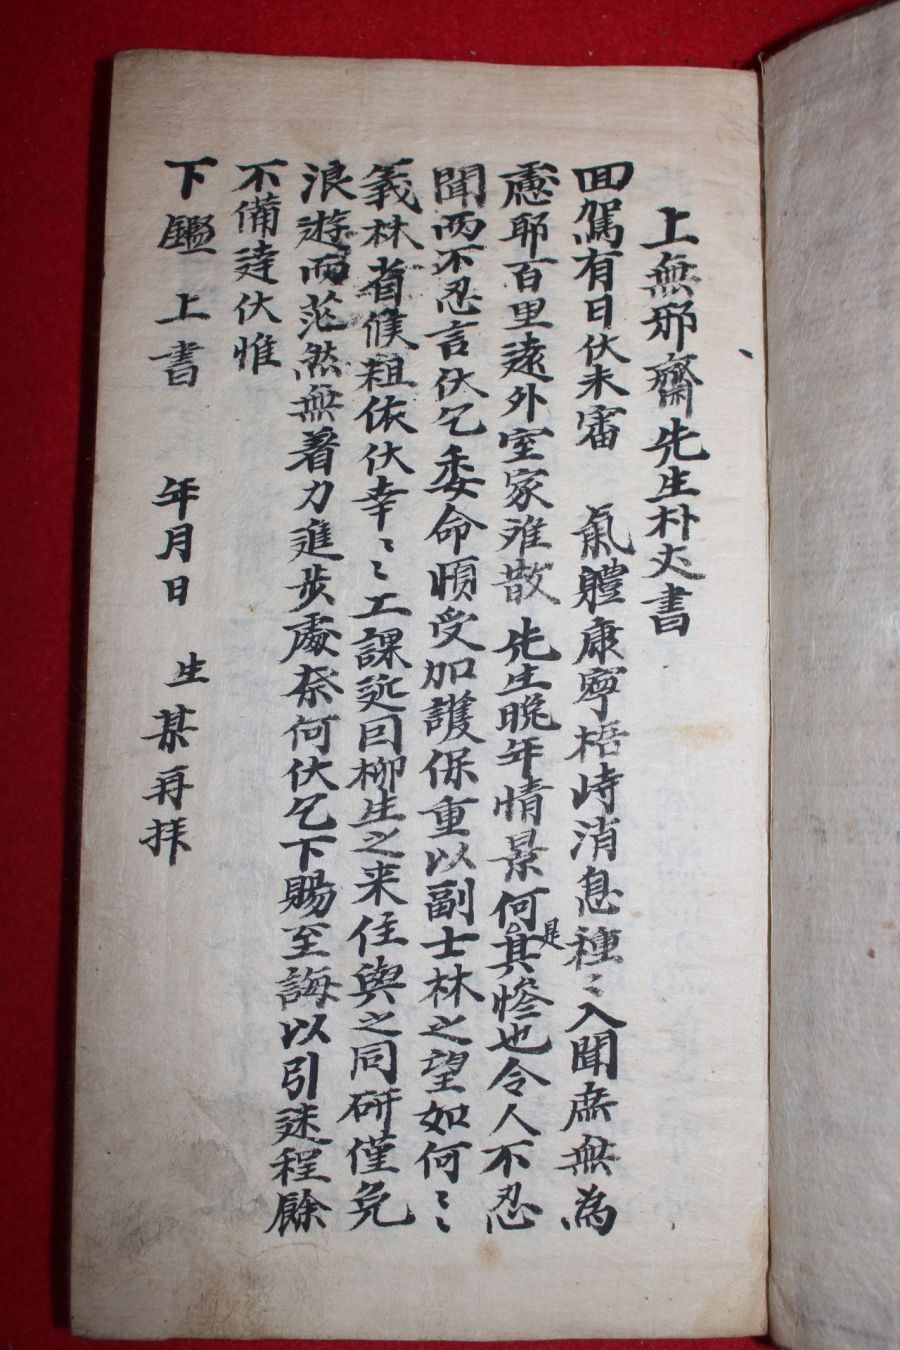 上無邪齋先生朴丈書
回駕有日伏未審 氣體康寧梧峙消息種〻入聞庶無為
慮耶百里遠外室家難散 先生晩年情景何是其慘也令人不忍
聞而不忍言伏乞委命順受加護保重以副士林之望如何〻
義林省候粗依伏幸〻工課近因柳生之来往與之同研僅免
浪遊而茫然無着力進步處奈何伏乞下賜至誨以引迷程餘
不備達伏惟
下鑑 上書 年月日 生 某再拜